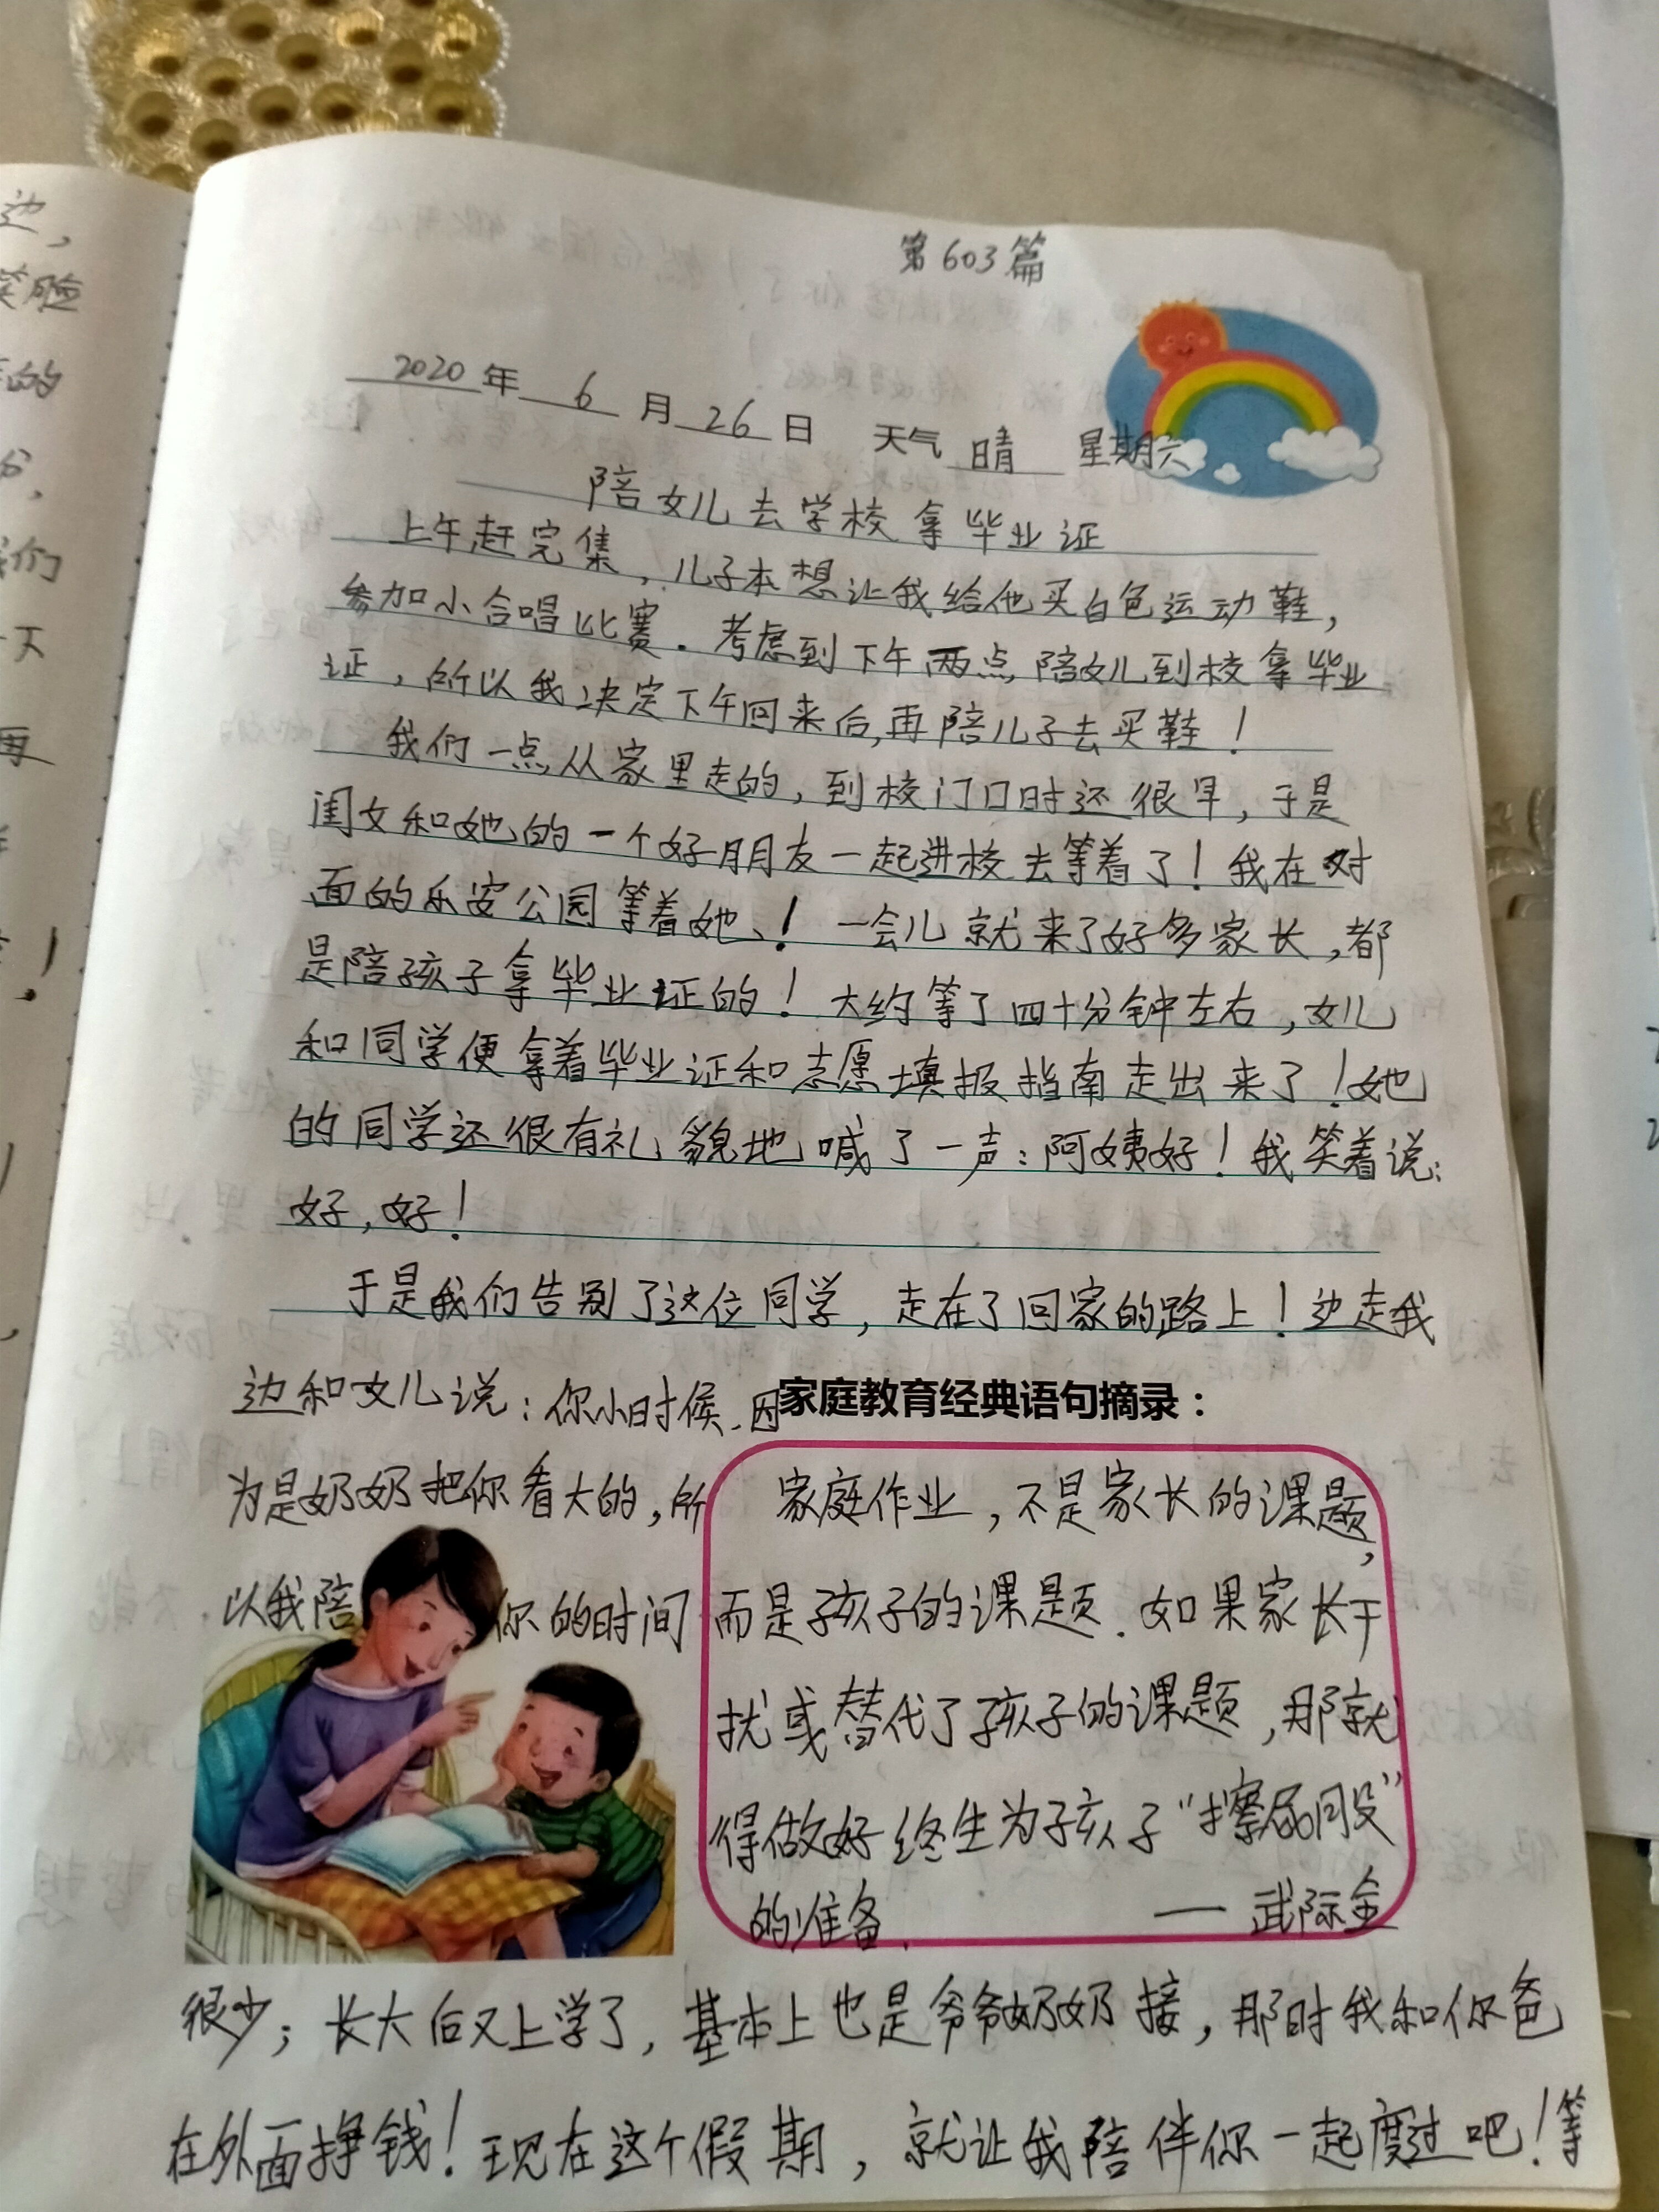 第603篇
2020年 6月26日 天气 晴 星期六
陪女儿去学校拿毕业证
上午赶完集，儿子本想让我给他买白色运动鞋，
参加小合唱比赛．考虑到下午两点陪女儿到校拿毕业
证，所以我决定下午回来后，再陪儿子去买鞋！
我们一点从家里走的，到校门口时还很早，于是
闺女和她的一个好朋友一起进校去等着了！我在对
面的乐安公园等着她！一会儿就来了好多家长，都
是陪孩子拿毕业证的！大约等了四十分钟左右，女儿
和同学便拿着毕业证和志愿填报指南走出来了！她
的同学还很有礼貌地喊了一声：阿姨好！我笑着说：
好，好！
于是我们告别了这位同学，走在了回家的路上！边走我
边和女儿说：你小时候．因
为是奶奶把你看大的，所
以我陪你的时间
家庭教育经典语句摘录：
家庭作业，不是家长的课题，
而是孩子的课题．如果家长干
扰或替代了孩子的课题，那就
得做好终生为孩子“擦屁股”
的准备．——武际金
很少；长大后又上学了，基本上也是爷爷奶奶接，那时我和你爸
在外面挣钱！现在这个假期，就让我陪伴你一起度过吧！等
边，
笑脸
的
们
天
再
！